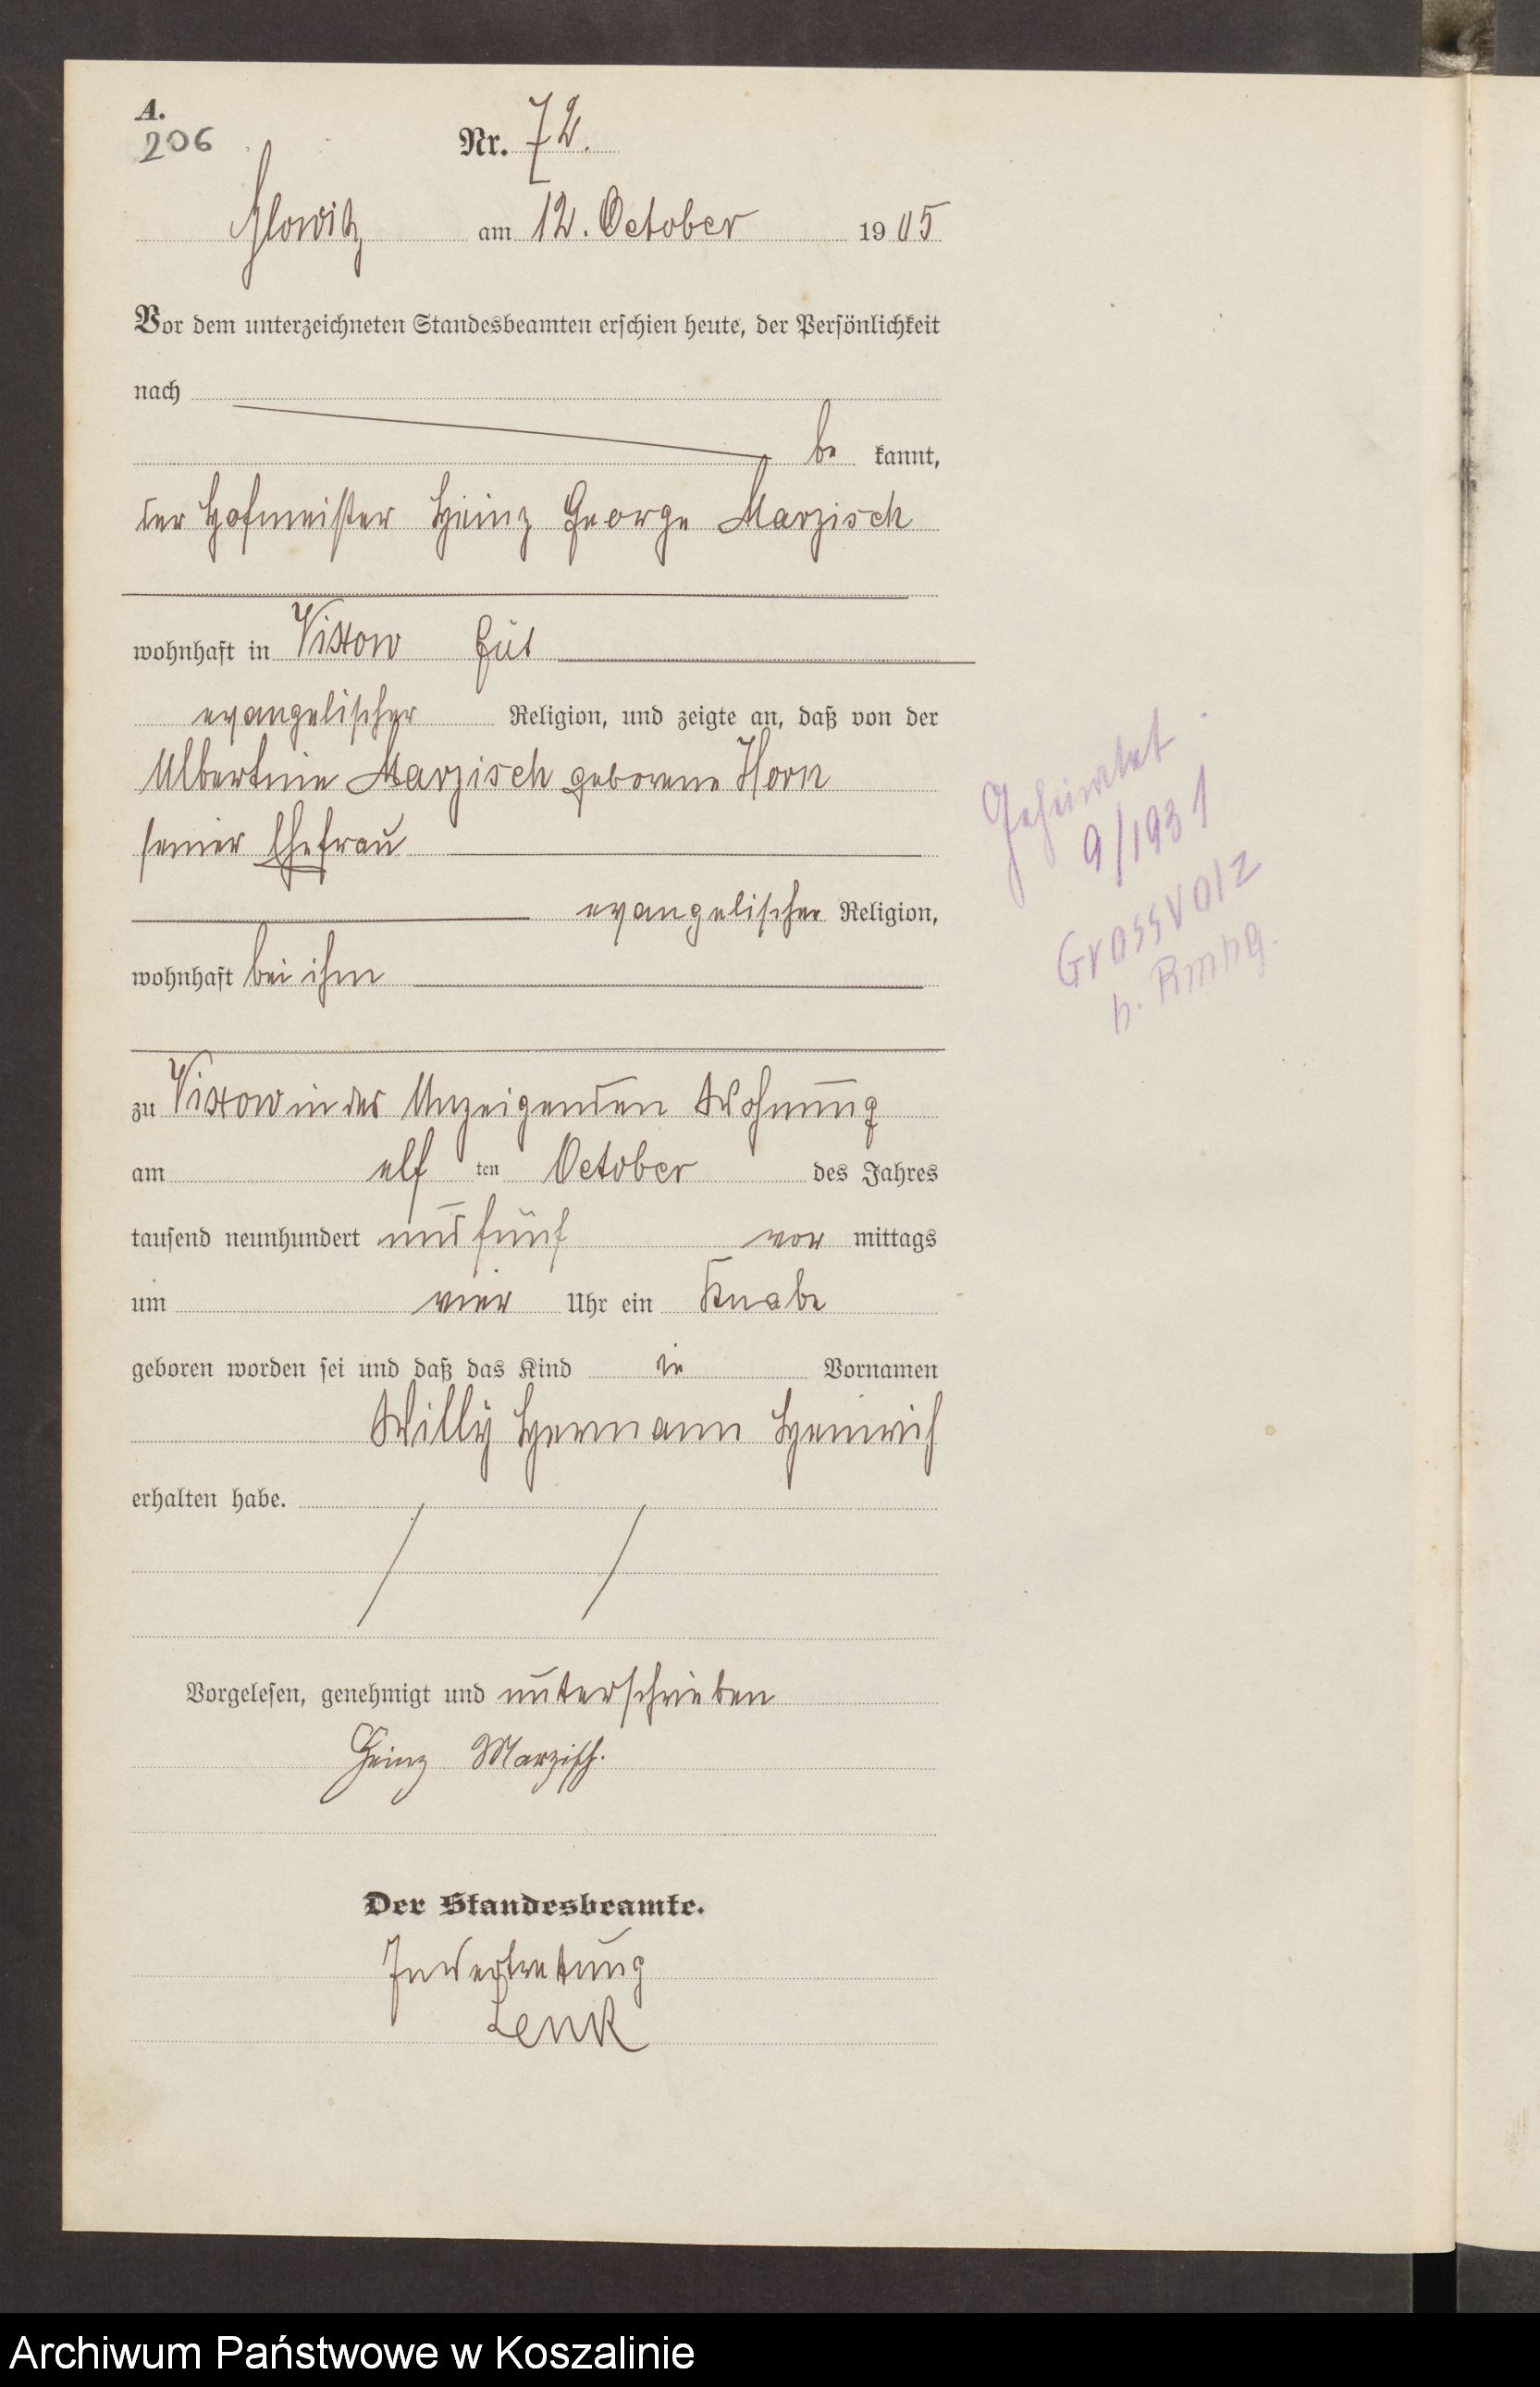 A.
206
Nr. 72.
Glowitz am 12. October 1905
Vor dem unterzeichneten Standesbeamten erschien heute, der Persönlichkeit
nach
be kannt,
der Hofmeister Heinz George Marzisch
wohnhaft in Vixow Gut
evangelischer Religion, und zeigte an, daß von der
Albertine Marzisch geborene Horn
seiner Ehefrau
evangelischer Religion,
wohnhaft bei ihm
zu Vixow in des Anzeigenden Wohnung
am elf ten October des Jahres
tausend neunhundert und fünf vor mittags
um vier Uhr ein Knabe
geboren worden sei und daß das Kind die Vornamen
Willy Hermann Heinrich
erhalten habe.
Vorgelesen, genehmigt und unterschrieben
Heinz Marzisch.
Der Standesbeamte.
In Vertretung
Lenk
Geheiratet
9/1931
Grossvolz
Archiwum Państwowe w Koszalinie